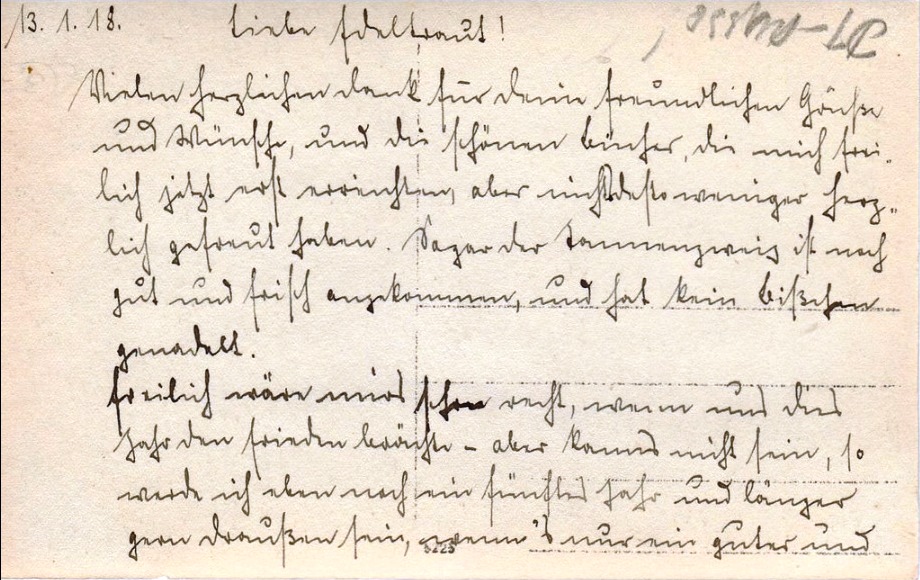 13. 1. 18. Liebe Edeltraut!
Vielen herzlichen dank für deine freundlichen Grüße
und Wünsche, und die schönen bücher, die mich frei-
lich jetzt erst erreichten, aber nichtsdestoweniger herz-
lich gefreut haben. Sogar der Tannenzweig ist noch
gut und frisch angekommen, und hat kein bißchen
genadelt.
freilich wäre mirs schon recht, wenn uns dies
Jahr den frieden brächte – aber kanns nicht sein, so
werde ich eben noch ein fünftes Jahr und länger
gern draußen sein, wenn's nur ein guter und
5225